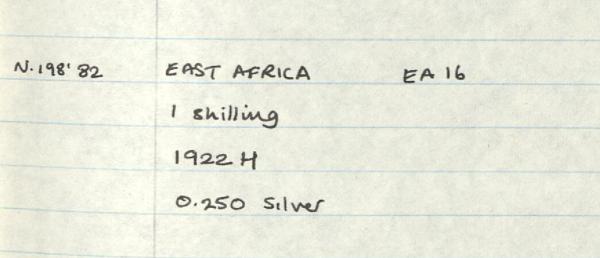 N.198'82 EAST AFRICA EA 16
1 shilling
1922 H
0.250 Silver